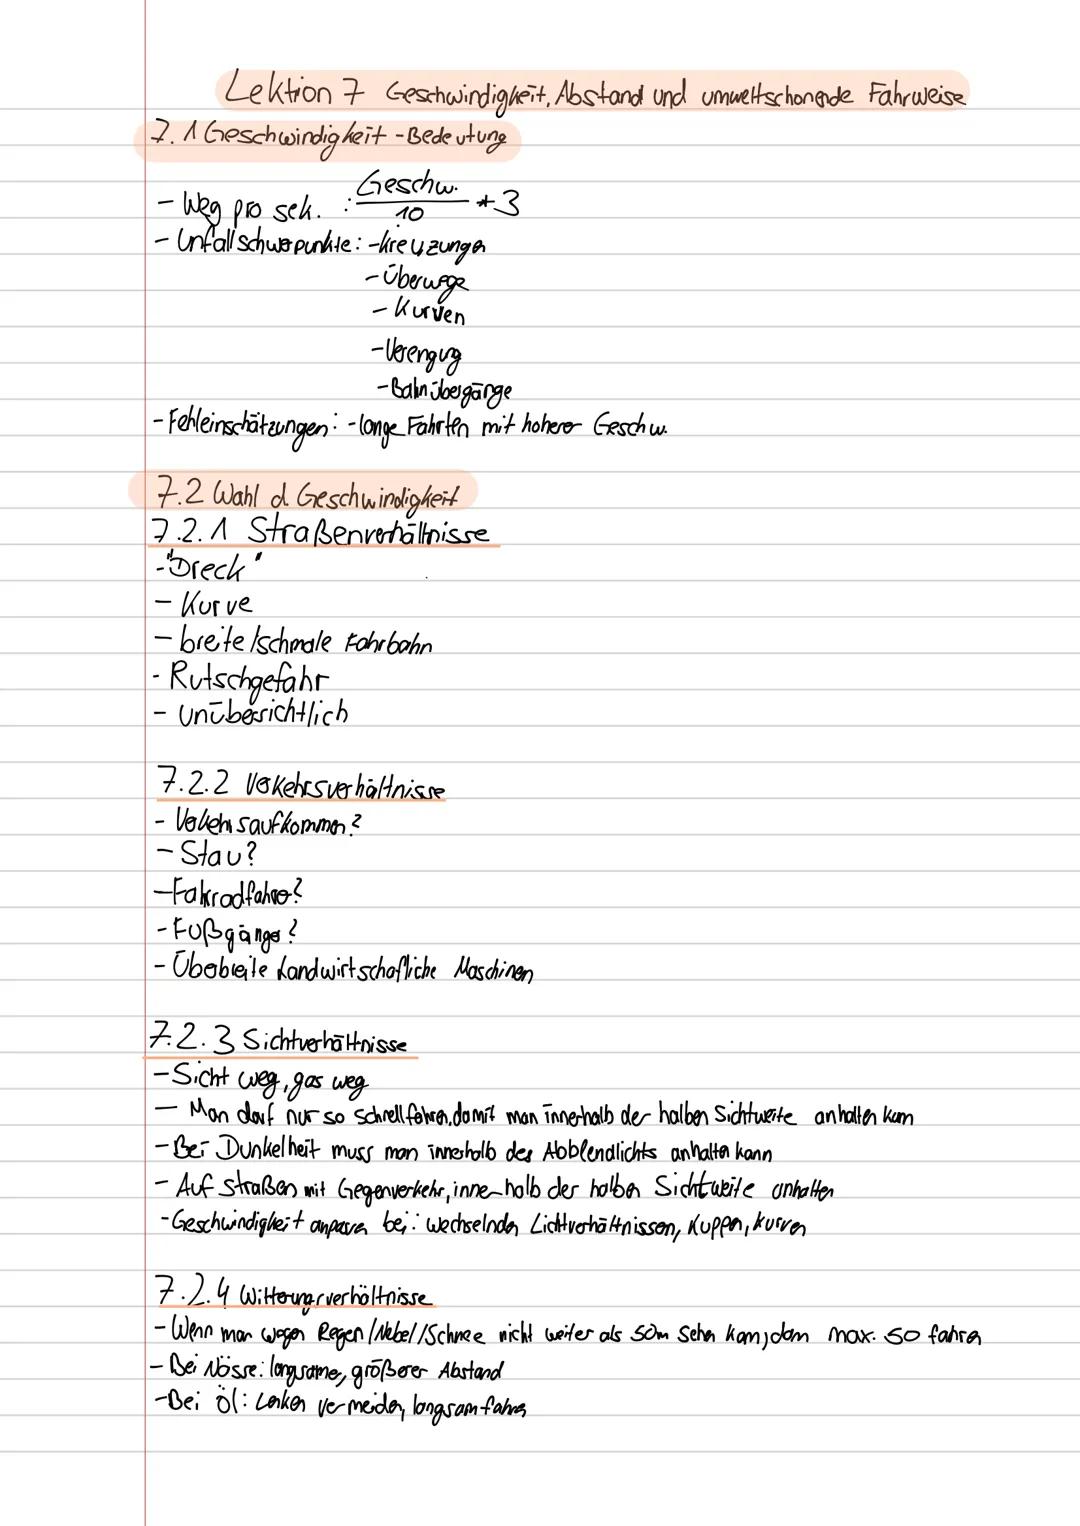 Lektion 7 Geschwindigkeit, Abstand und umweltschonende Fahrweise
7.1 Geschwindigkeit - Bedeutung
- Weg pro sek. : Geschw. / 10 * 3
- Unfallschwerpunkte: - Kreuzungen
- Überwege
- Kurven
- Verengung
- Bahnübergänge
- Fehleinschätzungen: - lange Fahrten mit hoherer Geschw.
7.2 Wahl d. Geschwindigkeit
7.2.1 Straßenverhältnisse
- "Dreck"
- Kurve
- breite/schmale Fahrbahn
- Rutschgefahr
- unübersichtlich
7.2.2 Verkehrsverhältnisse
- Verkehrsaufkommen?
- Stau?
- Fahrradfahrer?
- Fußgänger?
- Überbreite Landwirtschafliche Maschinen
7.2.3 Sichtverhältnisse
- Sicht weg, gas weg
- Man darf nur so schnell fahren, damit man innerhalb der halben Sichtweite anhalten kann
- Bei Dunkelheit muss man innerhalb des Abblendlichts anhalten kann
- Auf straßen mit Gegenverkehr, innerhalb der halben Sichtweite anhalten
- Geschwindigkeit anpassen bei: wechselnden Lichtverhältnissen, Kuppen, kurven
7.2.4 Witterungsverhältnisse
- Wenn man wegen Regen/Nebel/Schnee nicht weiter als 50m sehen kann, dann max. 50 fahren
- Bei Nässe: langsamer, größerer Abstand
- Bei Öl: Lenken vermeiden, langsam fahren